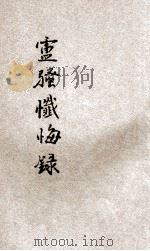 盧騷懺悔錄
mtoou.info